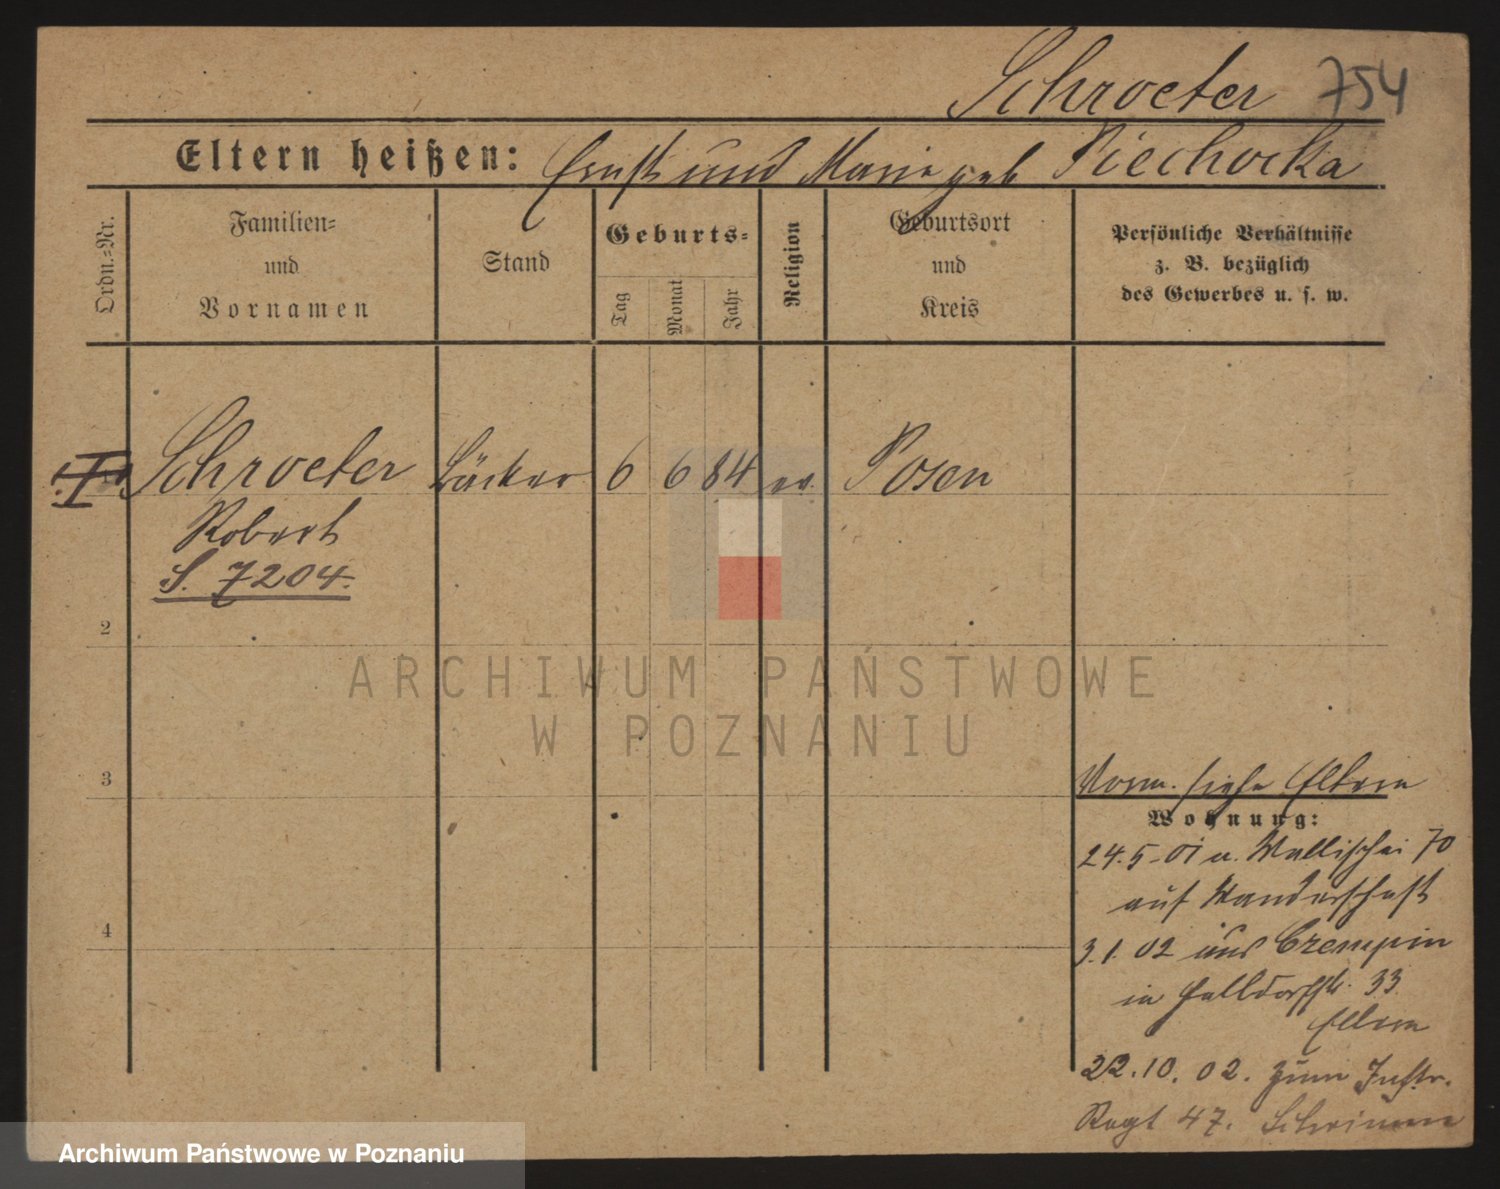 Schroeter 754
Eltern heißen: Ernst und Marie geb Piechocka
Ordn.=Nr.
Familien=
und
Vornamen
Stand
Geburts=
Tag
Monat
Jahr
Religion
Geburtsort
und
Kreis
Persönliche Verhältnisse
z. B. bezüglich
des Gewerbes u. s. w.
Schroeter Bäcker 6 6 84 ev. Posen
Robert
S. 7204.
2
3
4
Vorm. siehe Eltern
Wohnung:
24.5.01 n. Wallischei 70
auf Wanderschaft
3.1.02 aus Czempin
in Halldorfstr. 33.
Eltern
22.10.02. zum Inftr.
Regt 47. Schrimm
ARCHIWUM PAŃSTWOWE
W POZNANIU
Archiwum Państwowe w Poznaniu